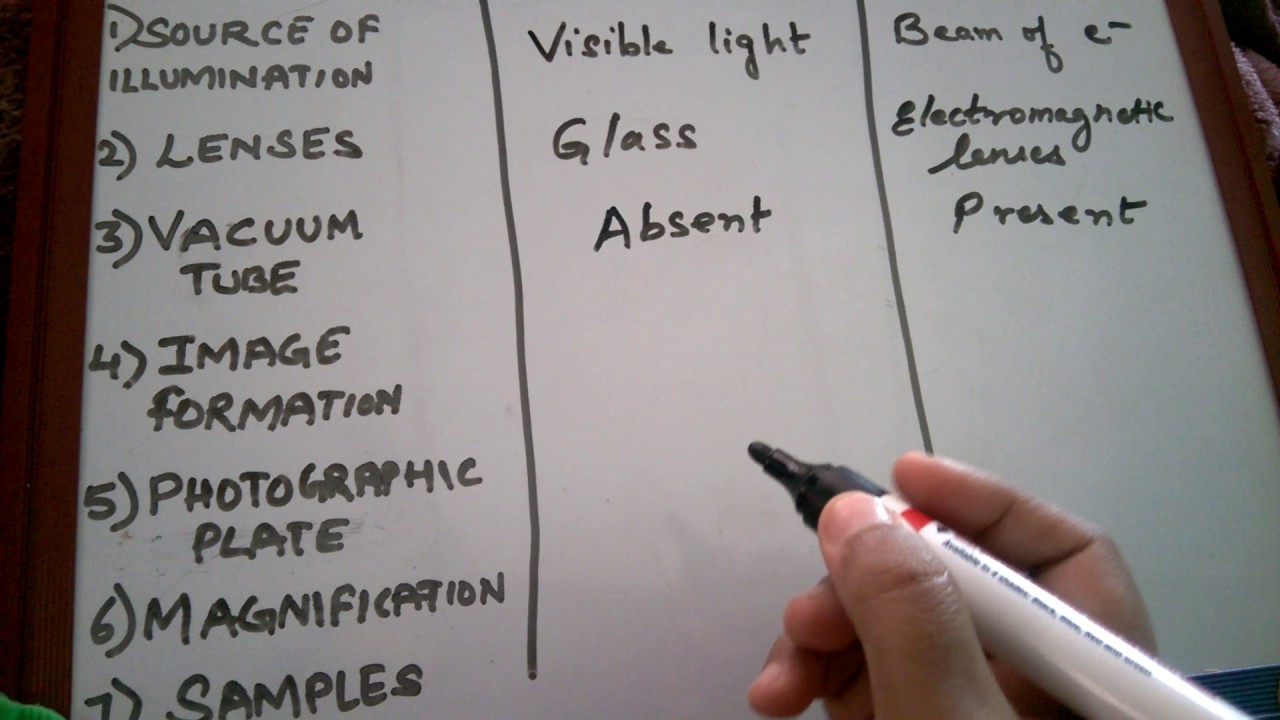 1) SOURCE OF
ILLUMINATION
Visible light
Beam of e⁻
2) LENSES
Glass
Electromagnetic
lenses
3) VACUUM
TUBE
Absent
Present
4) IMAGE
FORMATION
5) PHOTOGRAPHIC
PLATE
6) MAGNIFICATION
7) SAMPLES